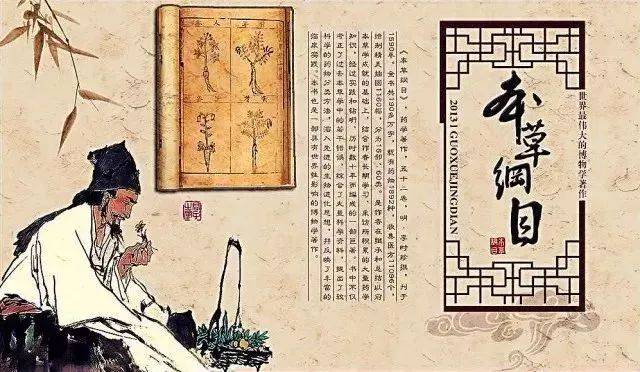 世界最伟大的博物学著作
本草綱目
2013 | GUOXUEJINGDIAN
《本草纲目》，药学著作，五十二卷，明·李时珍撰，刊于
1590年。全书共190多万字，载有药物1892种，收集医方11096个，
绘制精美插图1160幅，分为16部、60类。是作者在继承和总结以前
本草学成就的基础上，结合作者长期学习、采访所积累的大量药学
知识，经过实践和钻研，历时数十年而编成的一部巨著。书中不仅
考正了过去本草学中的若干错误，综合了大量科学资料，提出了较
科学的药物分类方法，溶入先进的生物进化思想，并反映了丰富的
临床实践。本书也是一部具有世界性影响的博物学著作。